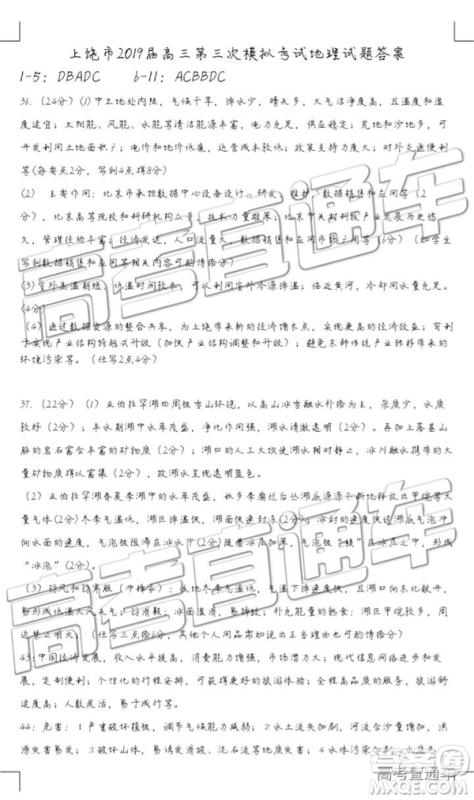 上饶市2019届高三第三次模拟考试地理试题答案
1-5：DBADC 6-11：ACBBDC
36.（24分）(1)中卫地处内陆，气候干旱，降水少，晴天多，大气洁净度高，且温度和湿
度适宜；太阳能、风能、水能等清洁能源丰富，电力充足，供应稳定；荒地和沙地多，可
开发利用土地面积广；电价和地价低廉，运营成本较低；政策支持力度大；对外交通便利
等(每要点2分，写到4点得8分)
（2） 主要作用：北京市承担数据中心设备设计、研发、维护、数据销售和应用等（2
分），北京高等院校和科研机构众多，技术力量雄厚；北京市相关高科技产业发展历史悠
久，管理经验丰富；经济发达，人口流量大；数据销售和应用市场广阔等（4分）（如学生
写到数据销售和应用等相关内容可酌情给分）
(3)室外高温期短，低温时间较长，可以利用室外冷源降温；临近黄河，冷却用水量充足。
(4分)
（4）通过数据资源的整合共享，为上饶带来新的经济增长点，实现更高的经济效益；有利
于实现产业结构跨越式升级（加快产业结构调整和升级）；避免东部传统产业转移带来的
环境污染等。（任写2点4分）
37.（22分）（1）亚伯拉罕湖四周极多雪山环绕，以高山冰雪融水补给为主，杂质少，水质
较好（2分）；丰水期湖中水草茂盛，净化作用强，湖水清澈透明（2分）。再加上落基山
脉的岩石富含丰富的矿物质（2分）；湖口的人工大坝使湖水相对静止，冰川融水所携带的大
量矿物质得以富集（2分），故湖水呈现透明蓝色。
（2）亚伯拉罕湖春夏季湖中的水草茂盛，秋季腐烂后总湖底源源不断地释放出甲烷等大
量气体(2分)冬季气温低，湖区降温快，湖面快速封冻(2分)。冰封的速度快过湖底气泡冲
向水面的速度，气泡极易阻滞在冰冻中(2分)随着冰层加厚，气泡极易被锁在冰层之中，形成
“冰泡”(2分)。
（3）防风和防寒服（冲锋衣）：该地冬季气温低，气温下降速度快，且湖口向东北敞开，
易形成低温大风天气；防滑鞋：冰面湿滑，易摔跤；补充能量的食物。湖区甲烷较多，周
边禁止明火；（任写三点给6分，其他个人用品需知说出正当理由也可酌情给分）
43.中国经济发展，收入水平提高，消费能力增强，市场潜力大；现代信息网络进步和发
展，定制便利；个性化的行程安排，可获得更好的旅游体验；全民法治意识提高，旅游氛
围好；人数灵活，易于成行等。
44. 危害：1严重破坏植被，调节气候能力减弱；2水土流失加剧，河流含沙量增加，洪
涝灾害易发；3破坏山体，易诱发滑坡、泥石流等地质灾害；
高考直通车
高考直通车